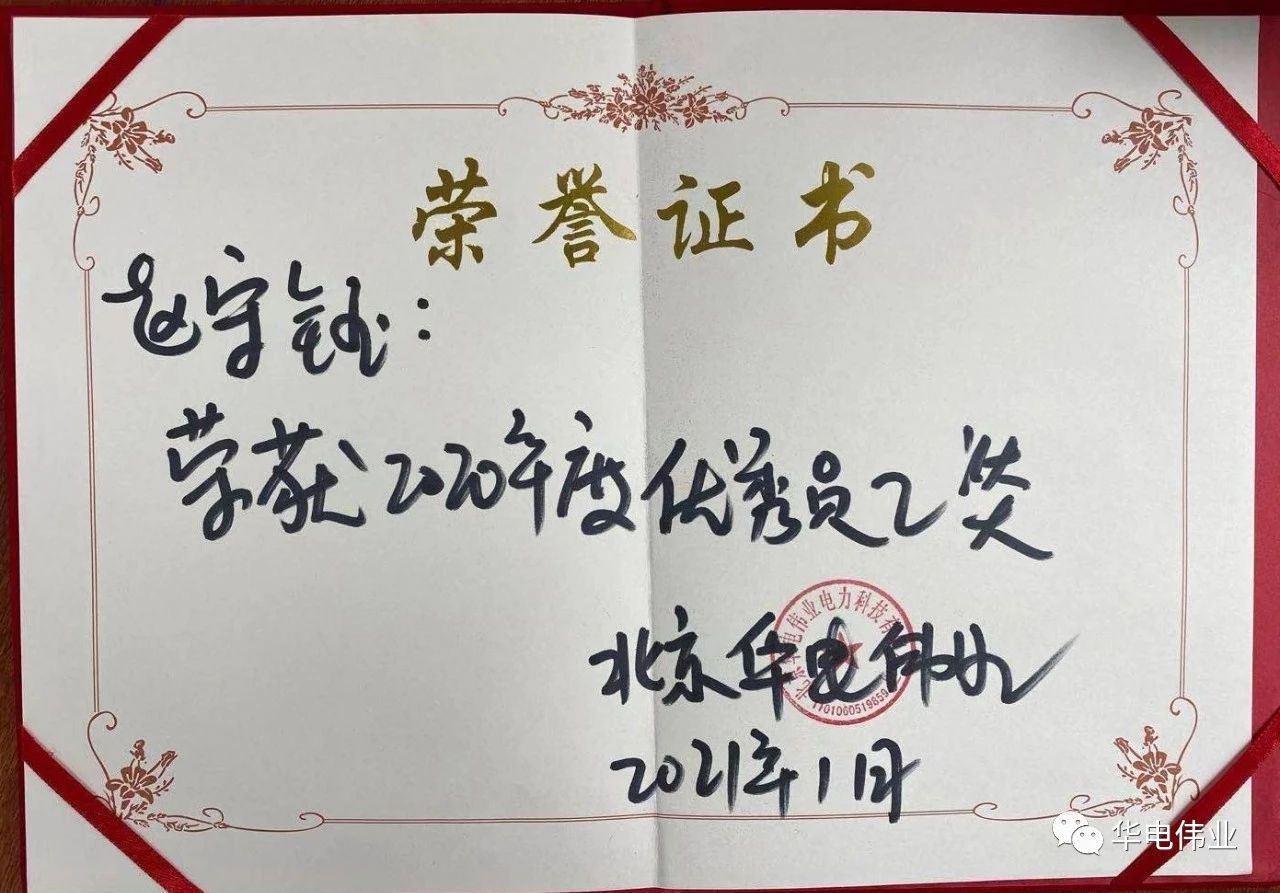 荣誉证书
赵宇钰：
荣获2020年度优秀员工奖
北京华电伟业电力科技有
1101060519859
北京华电伟业
2021年1月
华电伟业